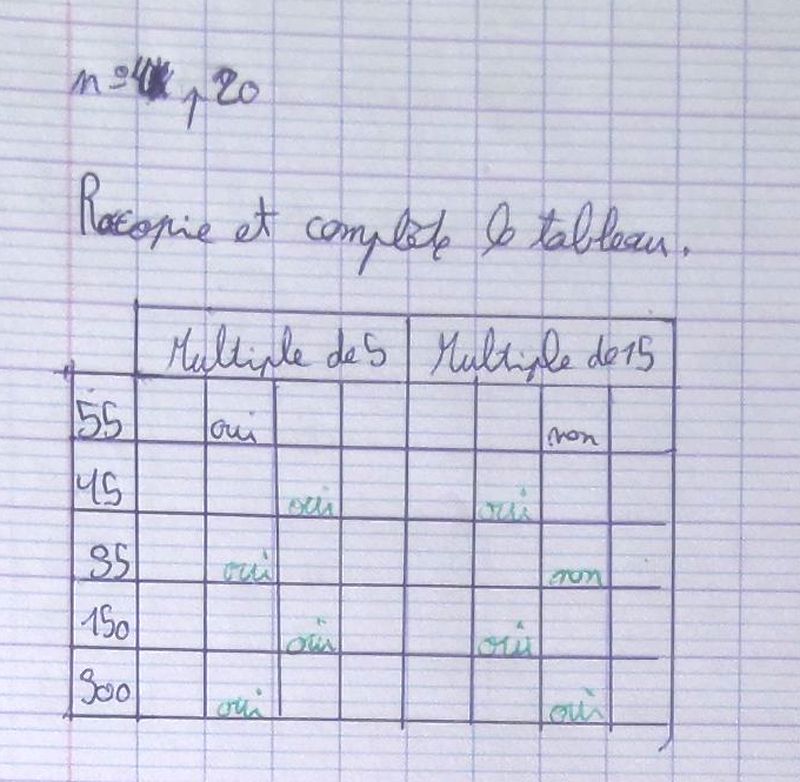 n°4 p 20
Recopie et complète le tableau.
Multiple de 5 Multiple de 15
55 oui non
45 oui oui
95 oui non
150 oui oui
900 oui oui